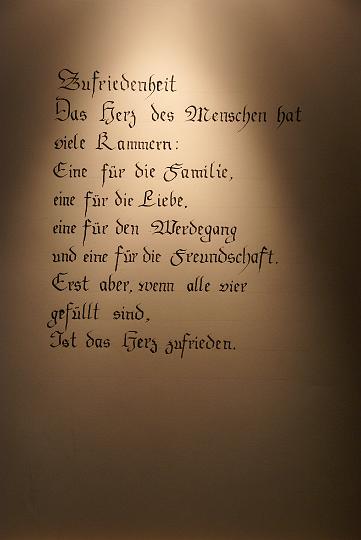 Zufriedenheit
Das Herz des Menschen hat
viele Kammern:
Eine für die Familie,
eine für die Liebe,
eine für den Werdegang
und eine für die Freundschaft.
Erst aber, wenn alle vier
gefüllt sind,
Ist das Herz zufrieden.